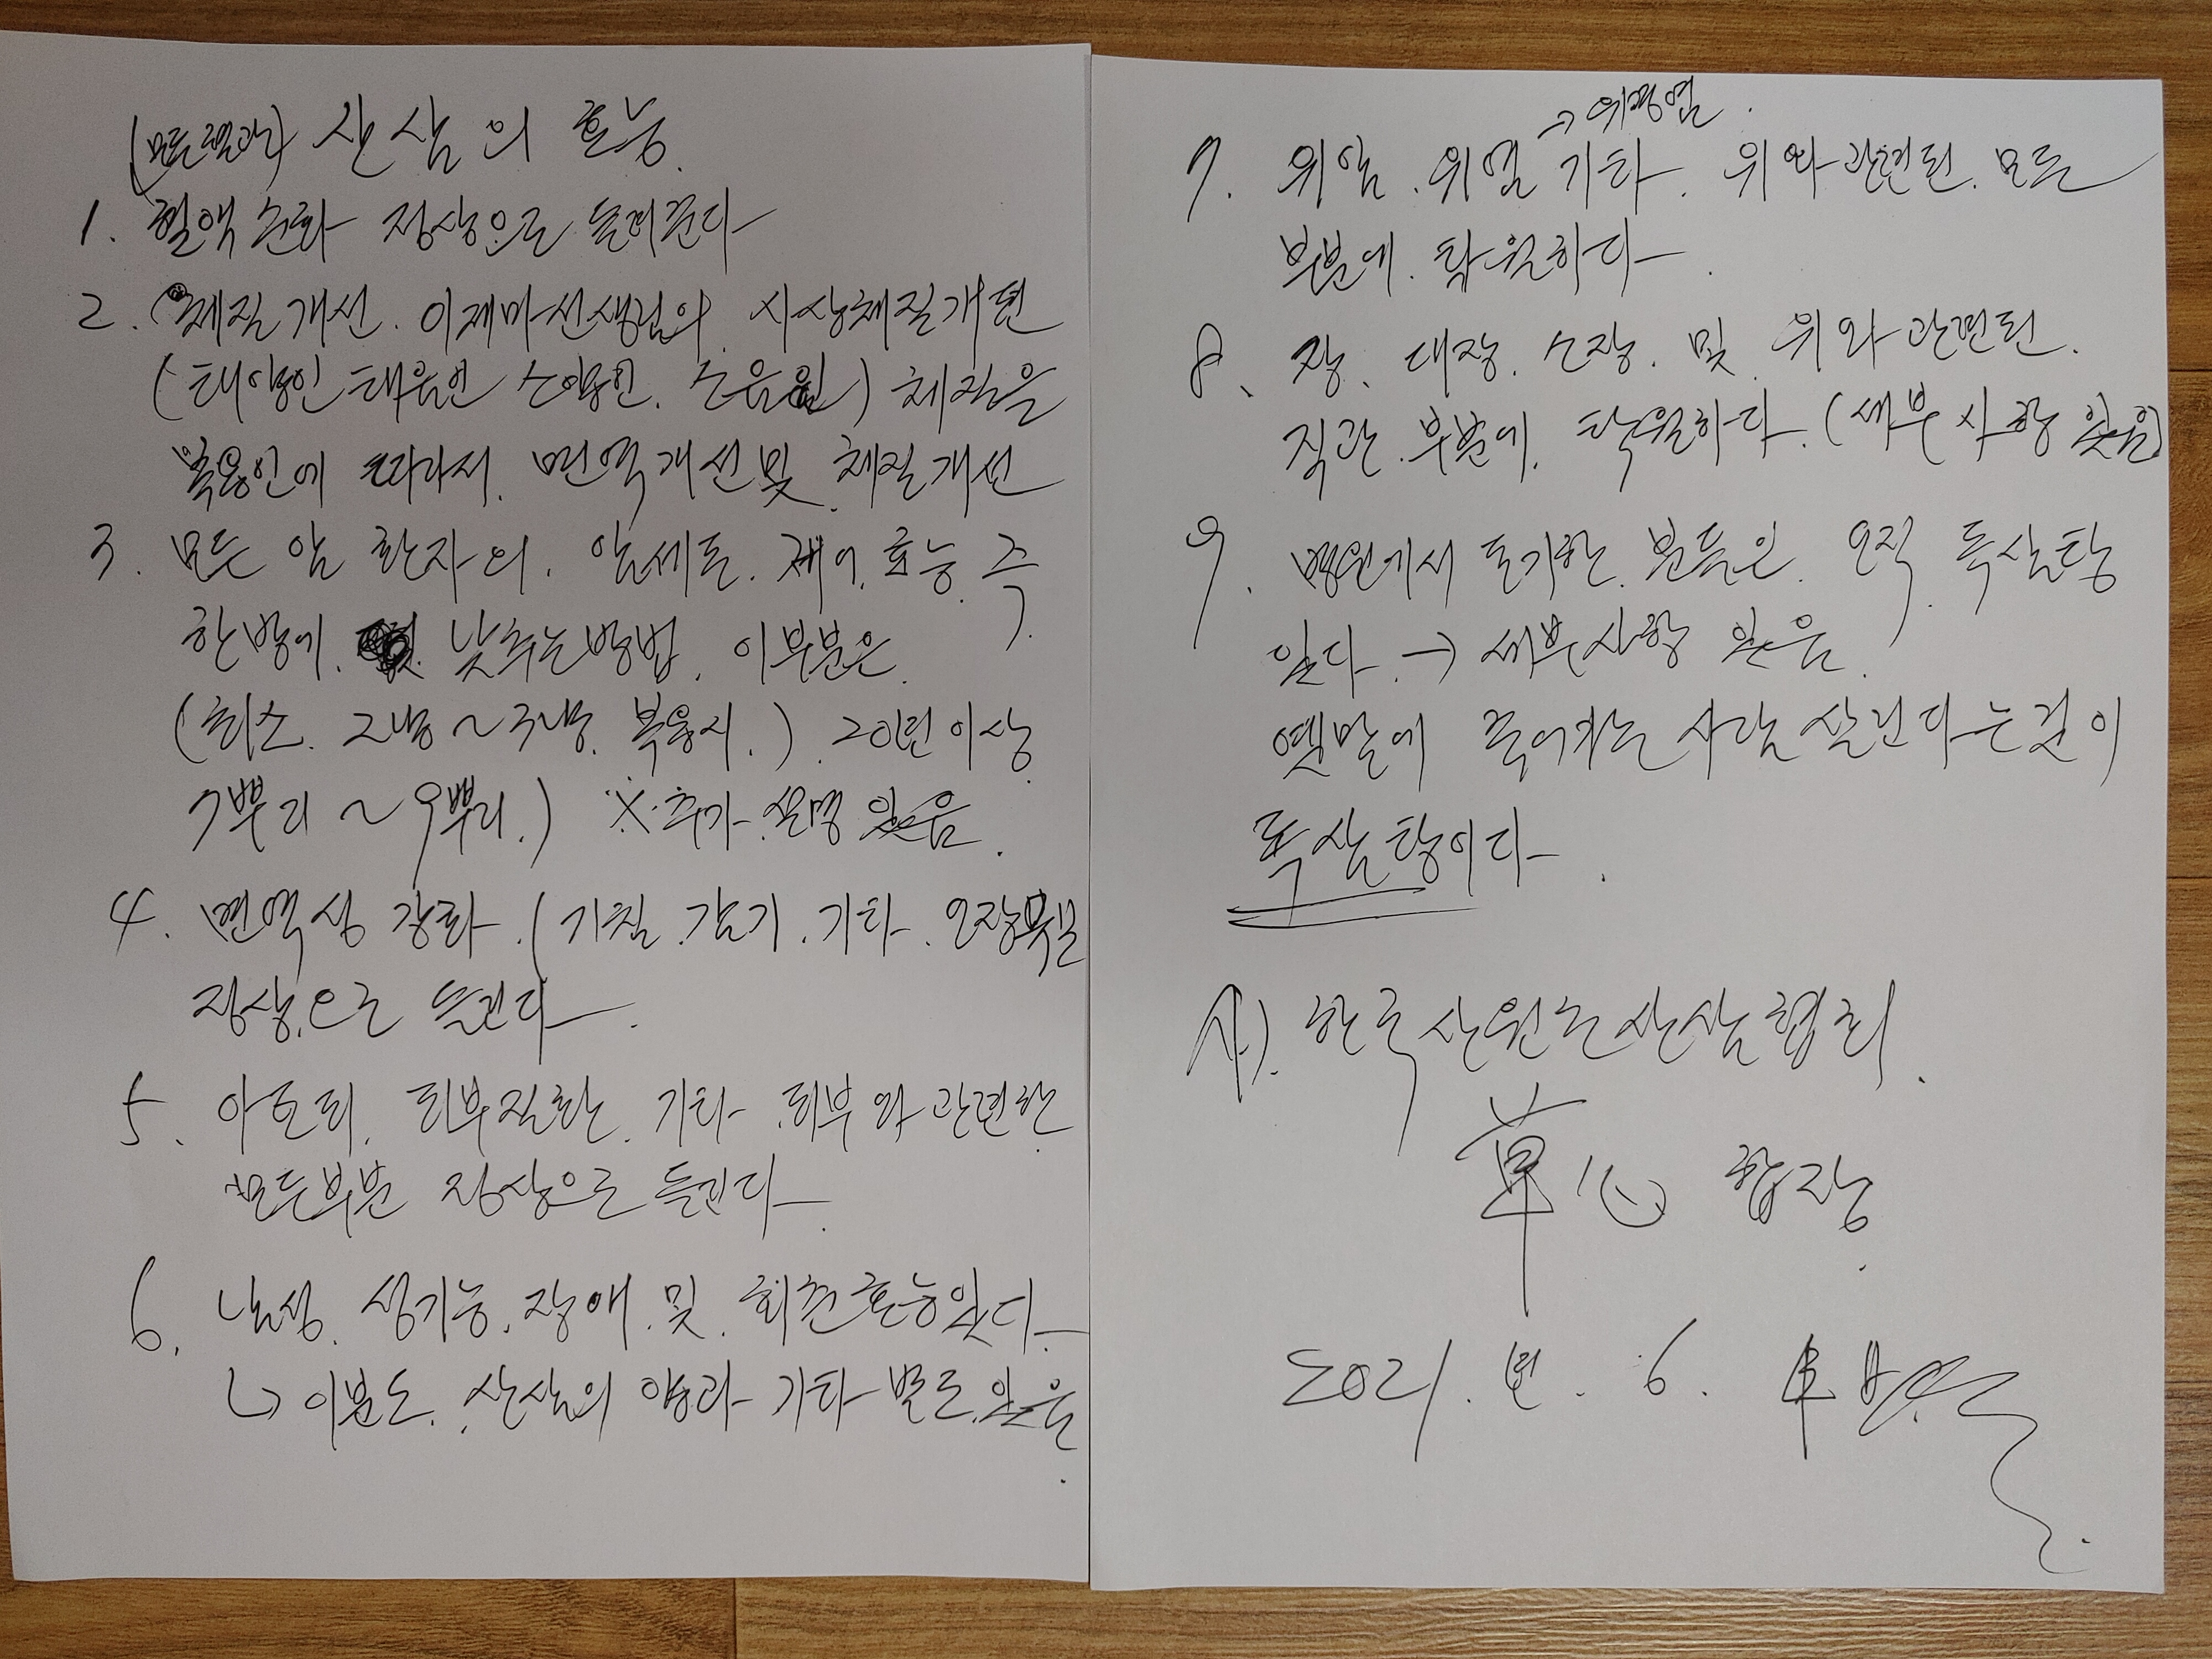 (모든 효과) 산삼의 효능.
1. 혈액순화 정상으로 돌려준다
2. 체질개선. 이제마선생님의 사상체질개편
(태양인 태음인 소양인. 소음인) 체질을
복용인에 따라서. 면역개선 및 체질개선
3. 모든 암 환자의. 암세포. 제어. 효능. 즉
한방에. 낮추는 방법. 이부분은.
(최소. 2냥~3냥. 복용시.) 20년 이상
7뿌리~9뿌리.) ※추가 설명 있음.
4. 면역성 강화. (기침. 감기. 기타. 오장육부
정상으로 돌린다.
5. 아토피. 피부질환. 기타. 피부와 관련한
모든부분 정상으로 돌린다.
6. 남성. 성기능. 장애. 및. 회춘효능있다.
↳ 이분도. 산삼의 양과 기타 별도. 있음.
→ 위경염.
7. 위암. 위염 기타. 위와 관련된. 모든
부분에. 탁월하다.
8. 장. 대장. 소장. 및 위와 관련된.
직관. 부분에. 탁월하다. (세부사항 있음)
9. 병원에서 포기한. 분들은. 오직. 독삼탕
있다. → 세부사항 있음.
옛말에 죽어가는 사람 살린다는 것이
독삼탕이다.
사). 한국산원초산삼협회.
草心 합장.
2021. 년. 6.